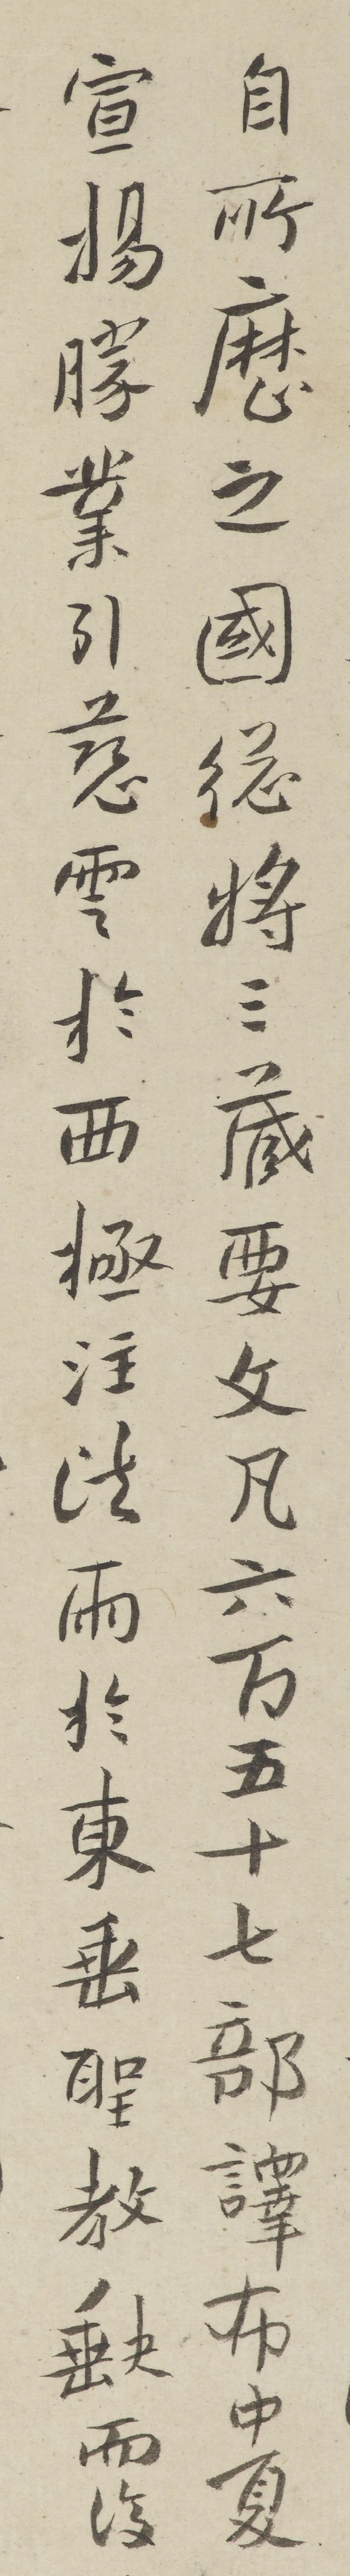 自所歷之國總將三藏要文凡六百五十七部譯布中夏
宣揚勝業引慈雲於西極注法雨於東垂聖教缺而復